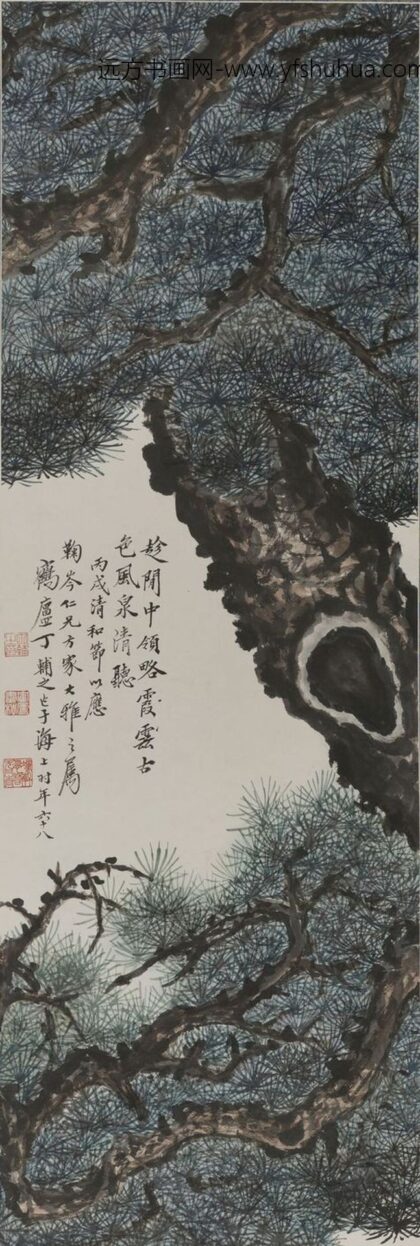 远方书画网-www.yfshuhua.com
趁閒中領略霞雲古
色風泉清聽
丙戌清和節以應
鞠岑仁兄方家大雅之屬
鶴廬丁輔之乍于海上时年六十八